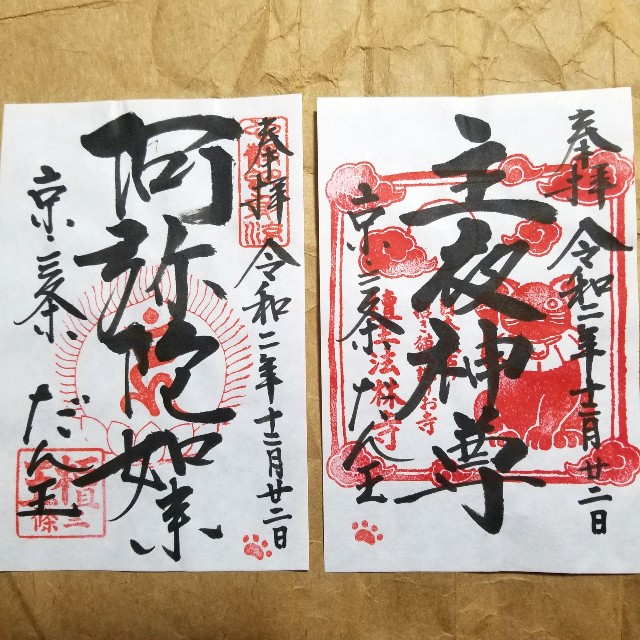 奉拝
令和二年十二月廿二日
阿弥陀如来
京・三条
だん王
奉拝
令和二年十二月廿二日
主夜神尊
京・三条
だん王
檀王法林寺